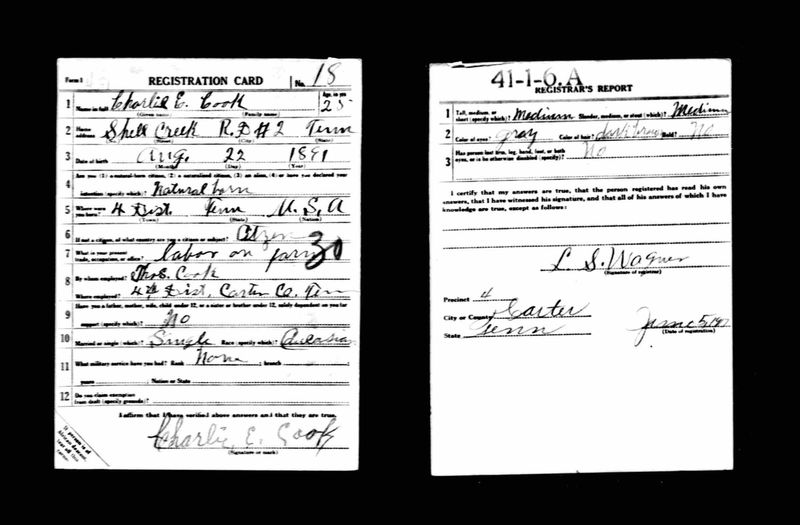 Form 1 REGISTRATION CARD No. 18
1 Name in full Charlie E. Cook Age, in yrs 25
(Given name) (Family name)
2 Home address Shell Creek R.D #2 Tenn
(Street) (City) (State)
3 Date of birth Aug. 22 1891
(Month) (Day) (Year)
4 Are you (1) a natural-born citizen, (2) a naturalized citizen, (3) an alien, (4) or have you declared your
intention (specify which)? Natural born
5 Where were you born? 4 Dist. Tenn U.S.A
(Town) (State) (Nation)
6 If not a citizen, of what country are you a citizen or subject? Citizen
7 What is your present trade, occupation, or office? labor on farm 30
8 By whom employed? Thos. Cook
Where employed? 4th Dist, Carter Co, Tenn
9 Have you a father, mother, wife, child under 12, or a sister or brother under 12, solely dependent on you for
support (specify which)? No
10 Married or single (which)? Single Race (specify which)?
11 What military service have you had? Rank None ; branch
years ; Nation or State
12 Do you claim exemption from draft (specify grounds)?
I affirm that I have verified above answers and that they are true.
Charlie, E. Cook
(Signature or mark)
If person is of African descent, tear off this corner.
41-1-6.A
REGISTRAR'S REPORT
1 Tall, medium, or short (specify which)? Medium Slender, medium, or stout (which)? Medium
2 Color of eyes? gray Color of hair? dark brown Bald? No
3 Has person lost arm, leg, hand, foot, or both eyes, or is he otherwise disabled (specify)? No
I certify that my answers are true, that the person registered has read his own
answers, that I have witnessed his signature, and that all of his answers of which I have
knowledge are true, except as follows:
L. S. Wagner
(Signature of registrar)
Precinct 4
City or County Carter
State Tenn June 5, 1917
(Date of registration)